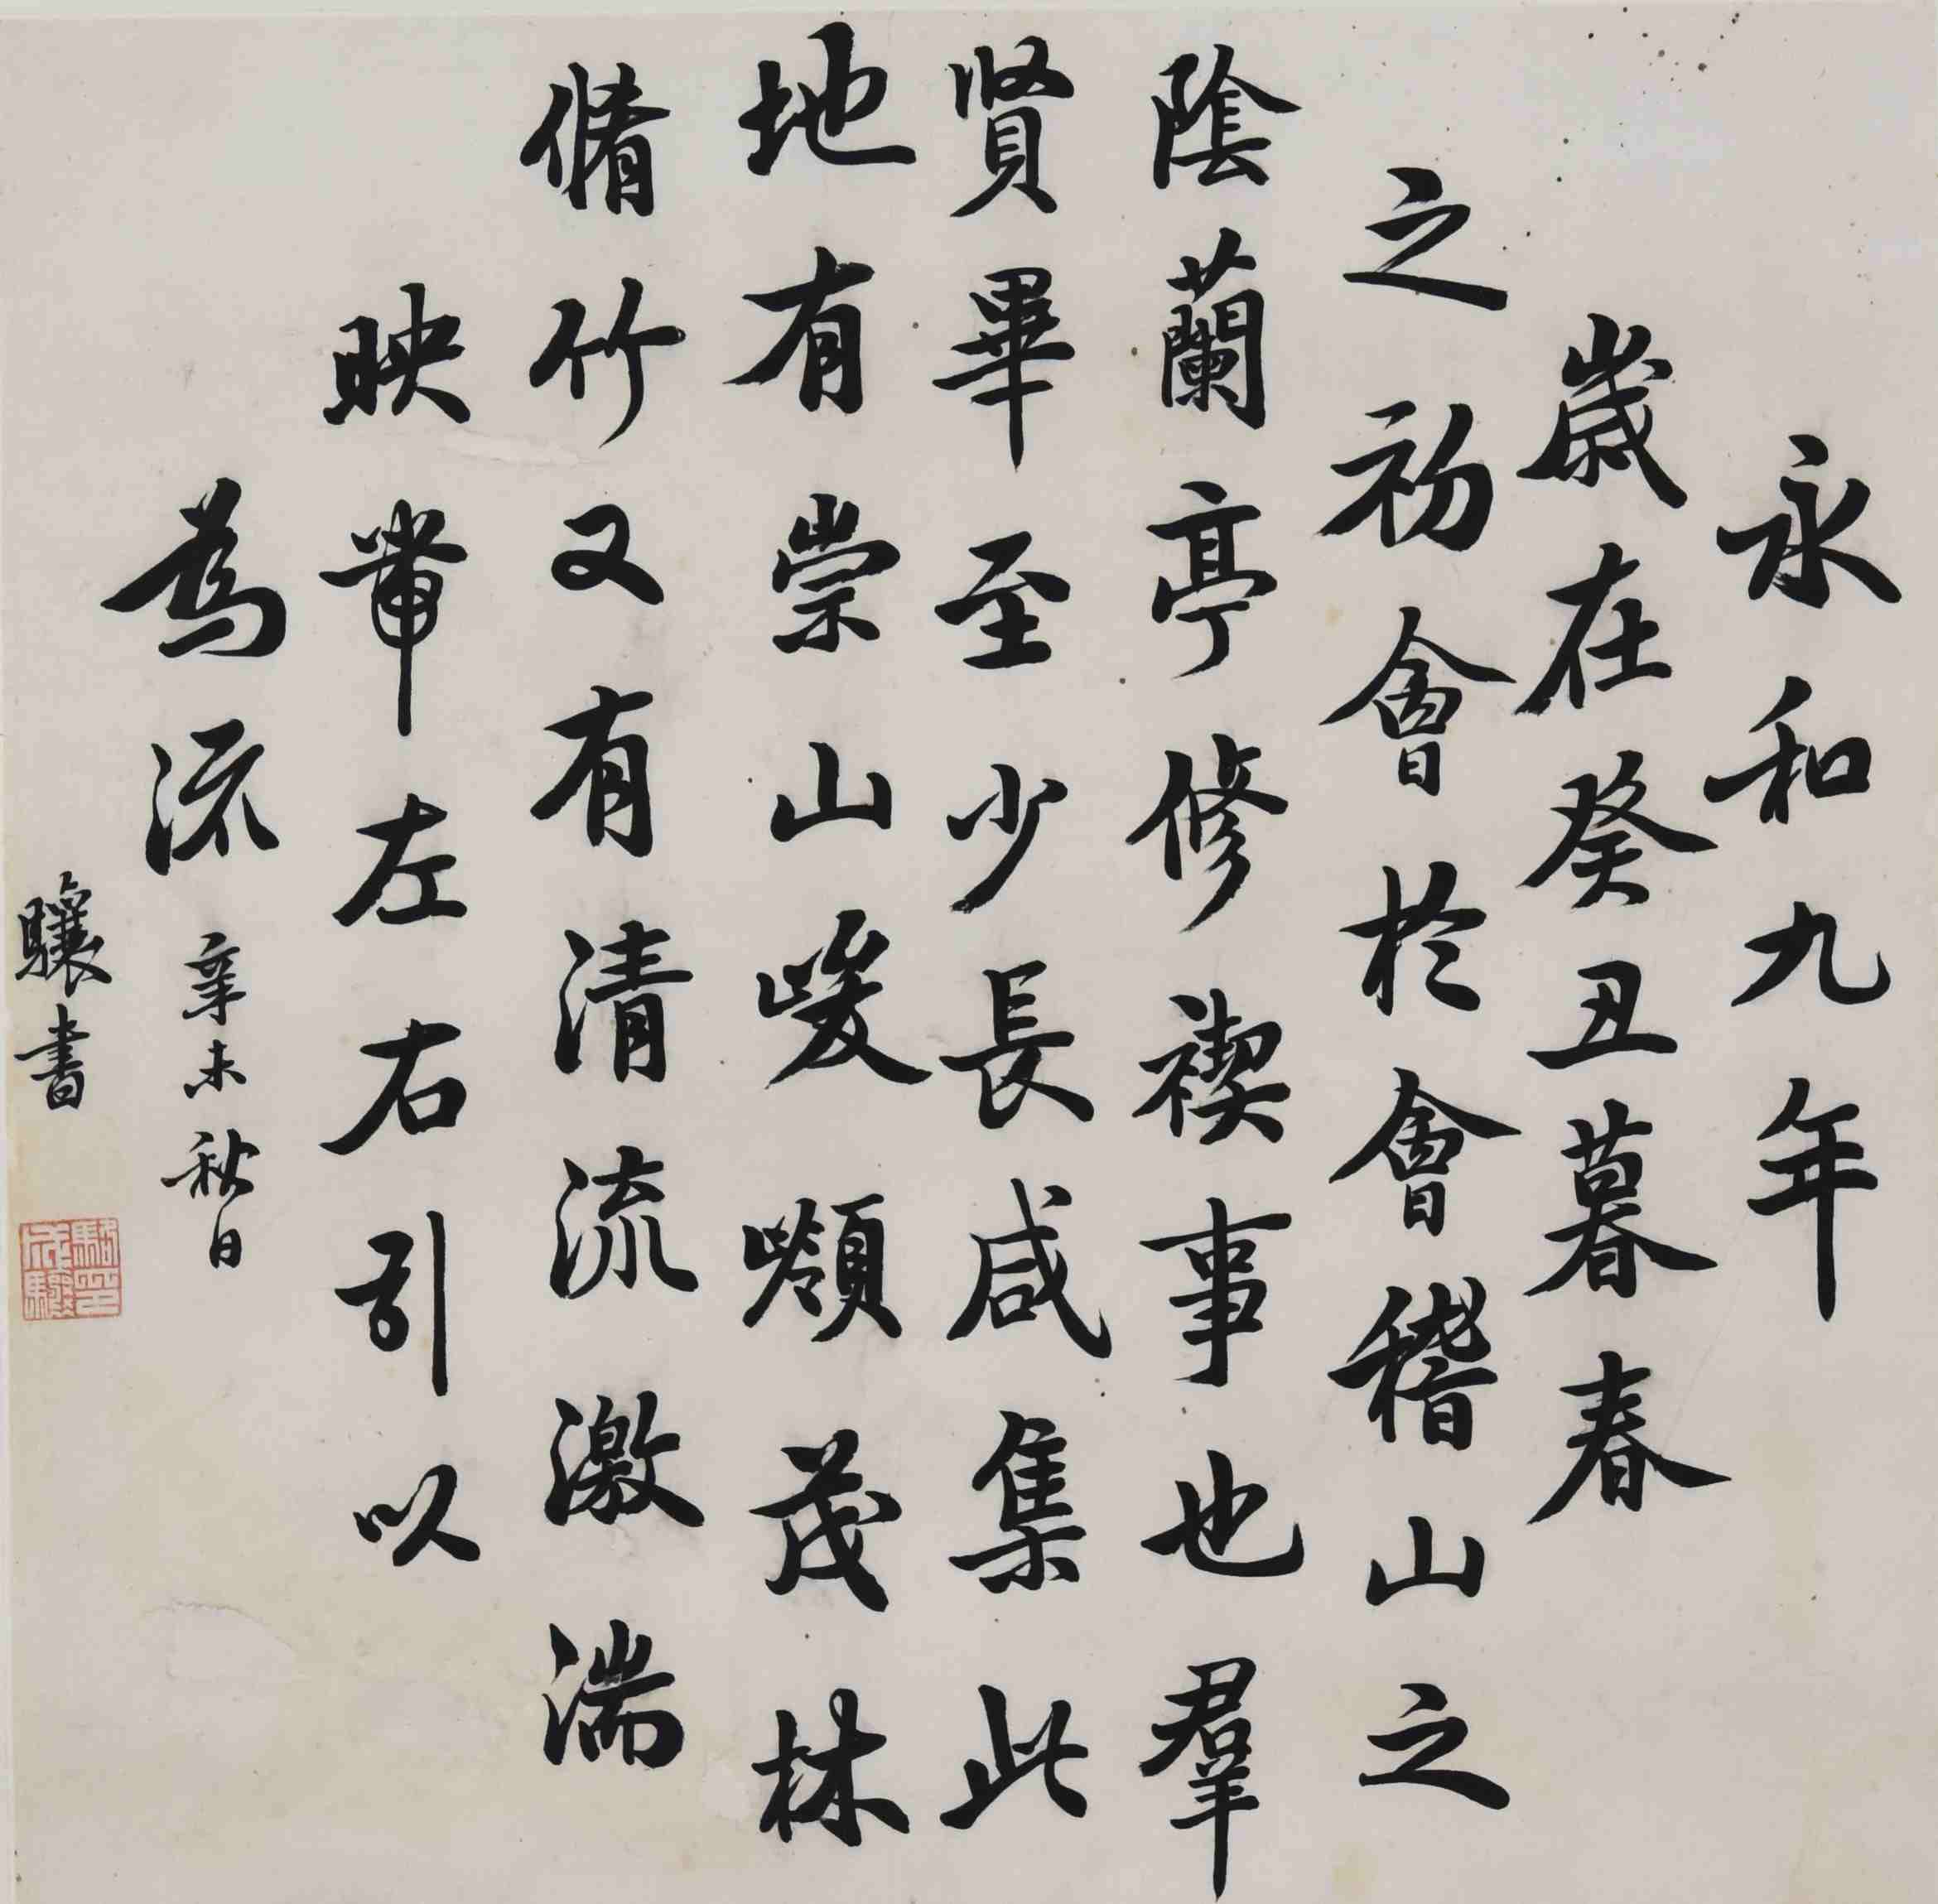 永和九年
歲在癸丑暮春
之初會於會稽山之
陰蘭亭修禊事也羣
賢畢至少長咸集此
地有崇山峻嶺茂林
脩竹又有清流激湍
映帶左右引以
為流
辛未秋日
驤書